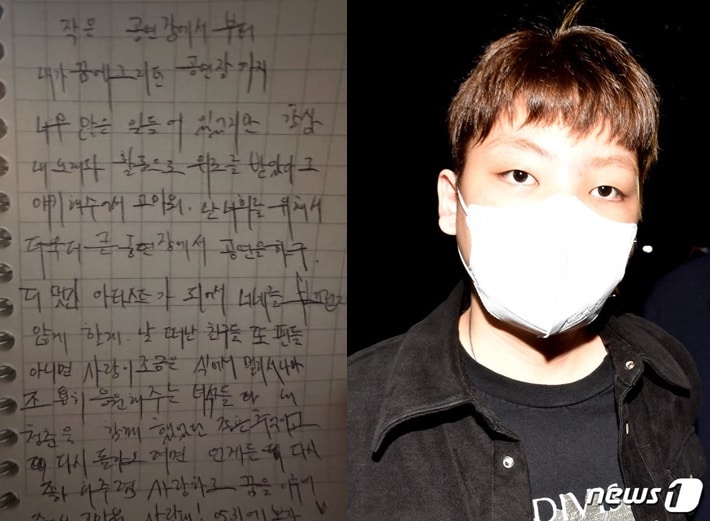 작은 공연장에서 부터
내가 꿈에그리던 공연장 까지
너무 많은 일들이 있었지만 항상
내 노래와 활동으로 위로를 받았다고
얘기해주어서 고마워. 난 너희를 위해서
더욱더 큰 공연장에서 공연을하구
더 멋진 아티스트가 되어서 너네들
않게 할게. 날 떠난 친구들 또 팬들
아니면 사랑이 조금은 식어서 멀리서나마
조용히 응원해주는 녀석들 다 내
청춘을 함께 했었던 추억이고
다시 돌아오려면 언제든 다시
와주면 사랑하고 꿈을
고마워 사랑해!
news1
DIV